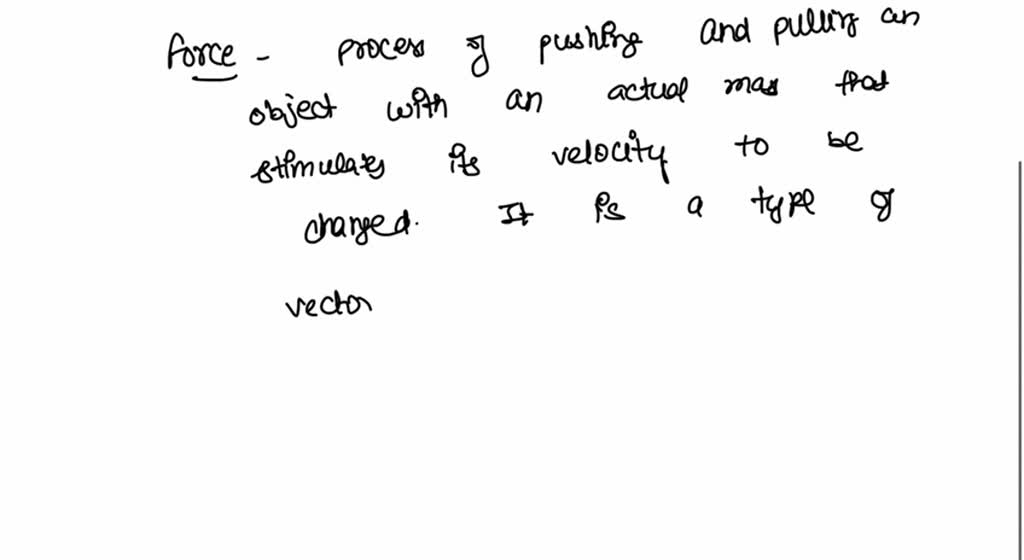 Force - process of pushing and pulling an
object with an actual mass that
stimulates its velocity to be
changed. It is a type of
vector